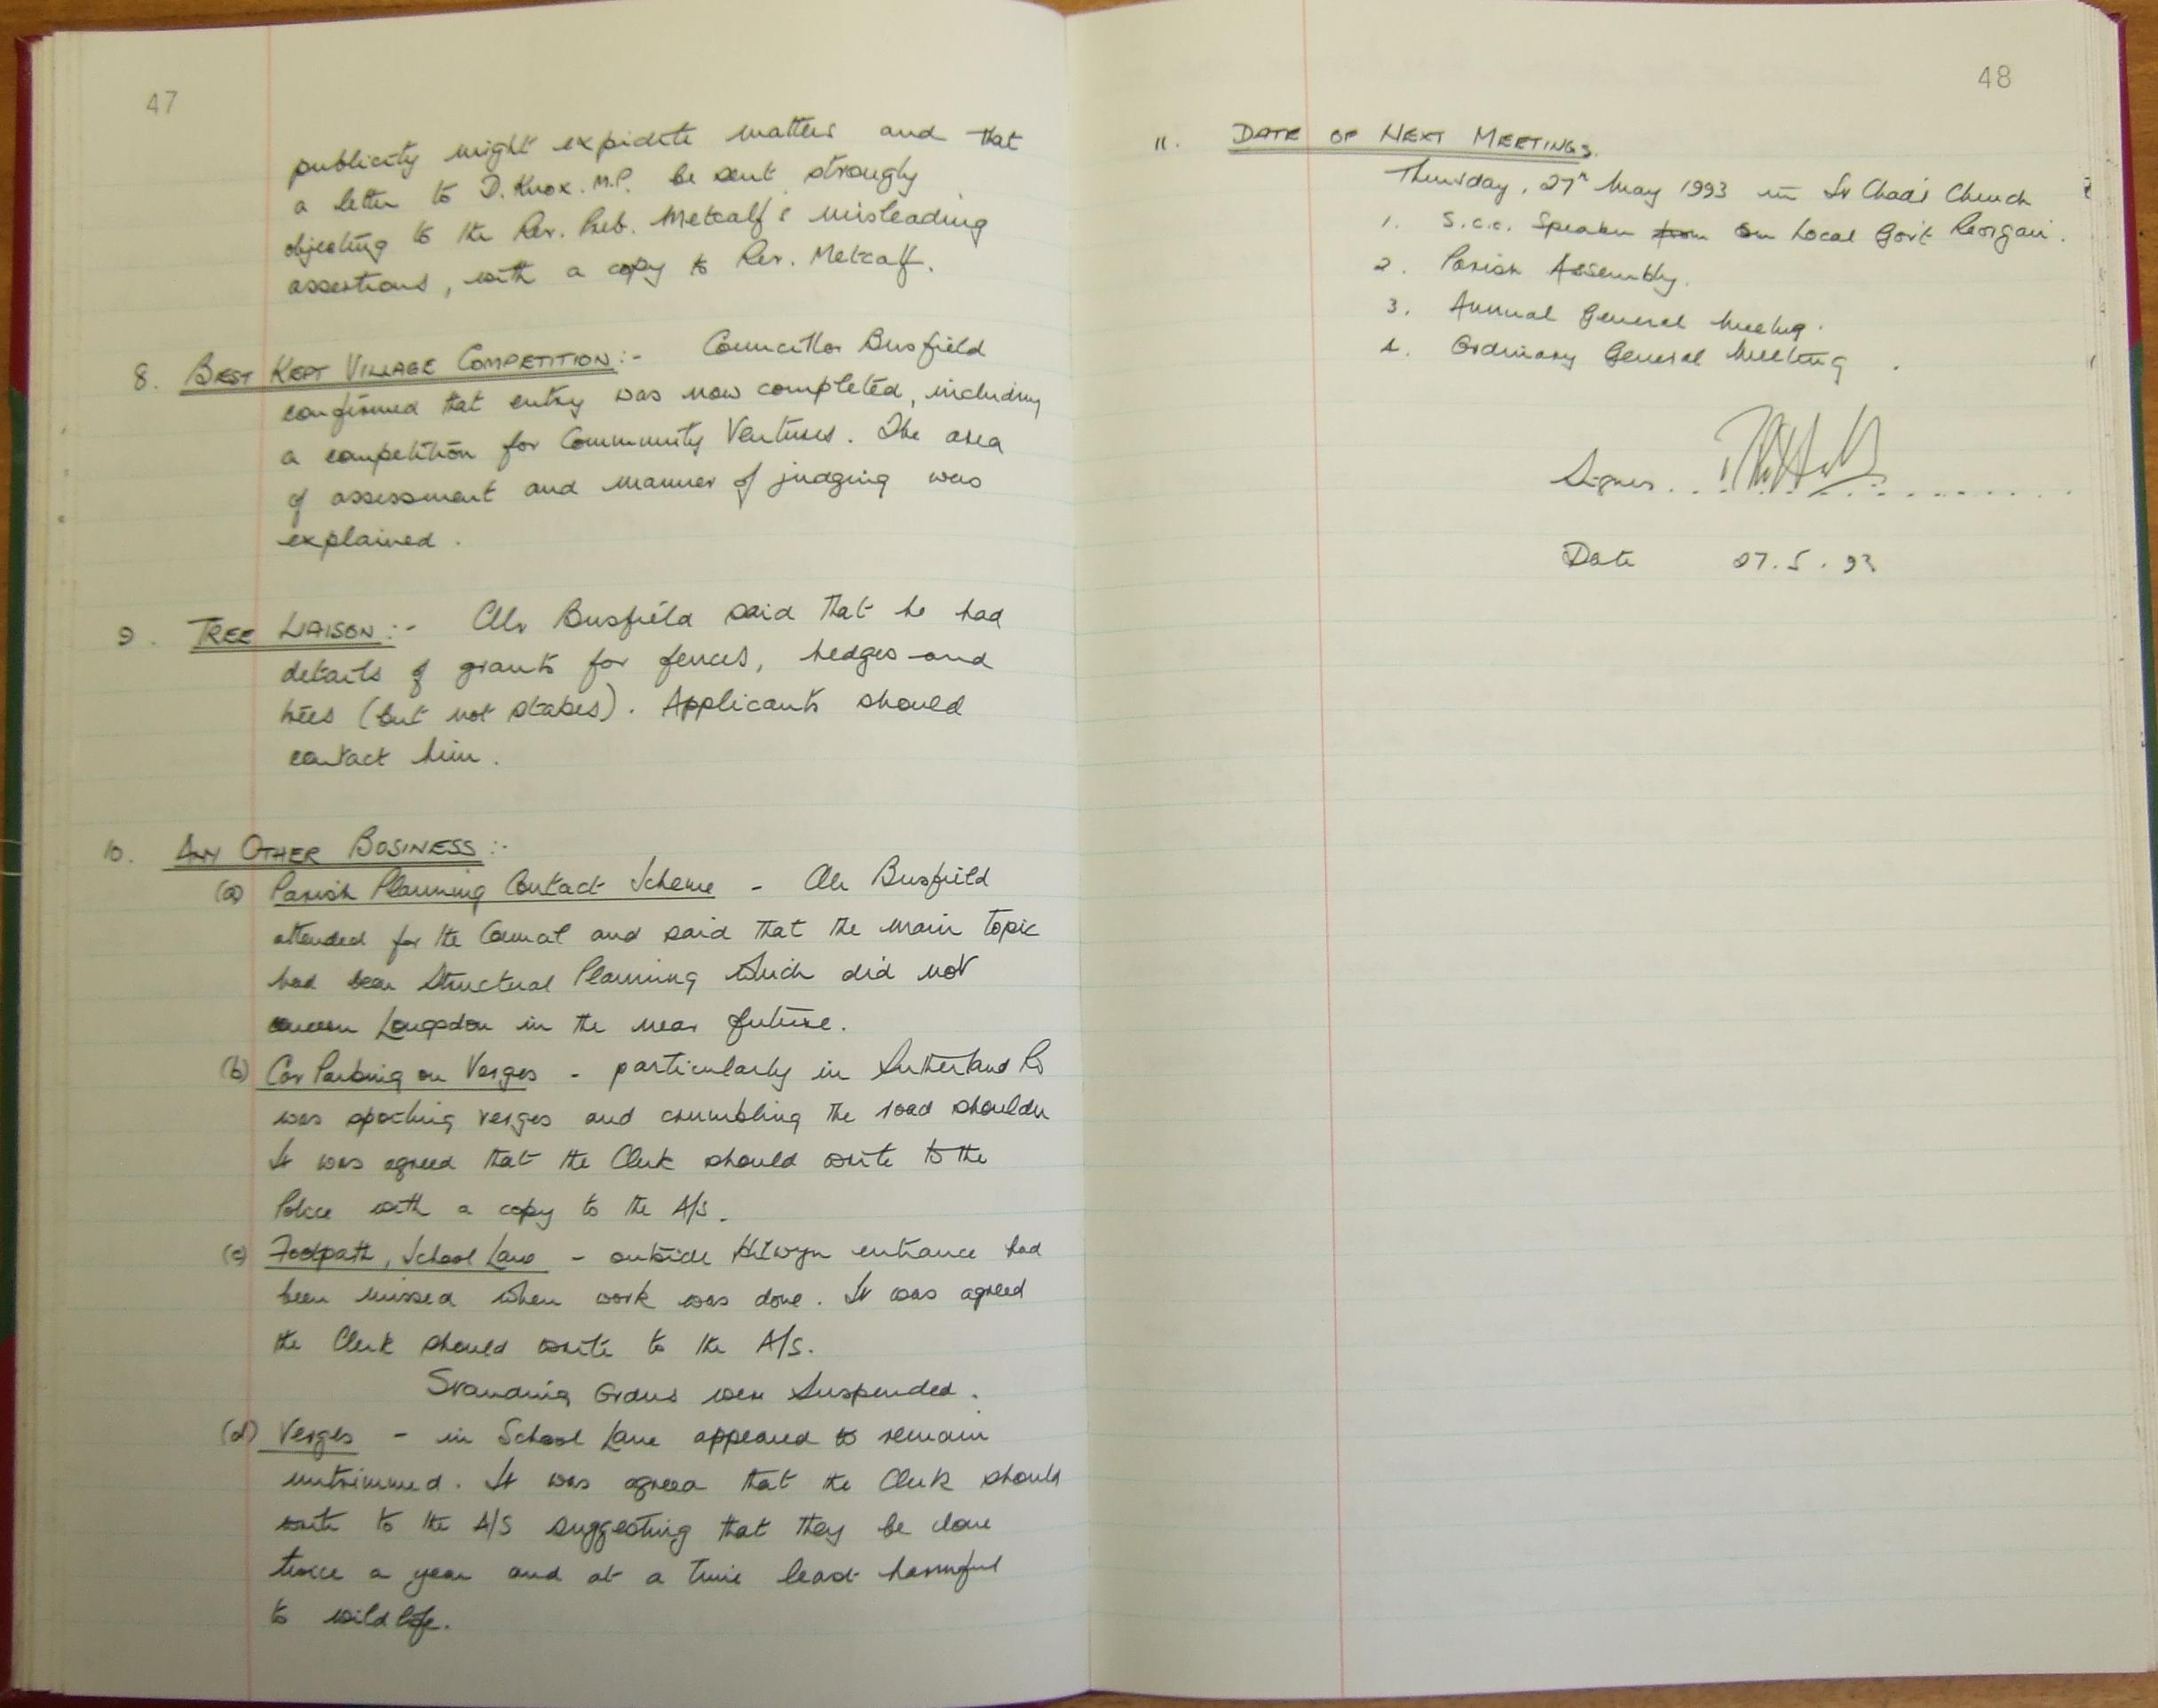 47
publicity might expidite matters and that
a letter to D. Knox. M.P. be sent strongly
objecting to the Rev. Preb. Metcalf's misleading
assertions, with a copy to Rev. Metcalf.
8. BEST KEPT VILLAGE COMPETITION:- Councillor Busfield
confirmed that entry was now completed, including
a competition for Community Ventures. The area
of assessment and manner of judging was
explained.
9. TREE LIAISON:- Cllr Busfield said that he had
details of grants for fences, hedges and
trees (but not stakes). Applicants should
contact him.
10. ANY OTHER BUSINESS:-
(a) Parish Planning Contact Scheme - Cllr Busfield
attended for the Council and said that the main topic
had been Structural Planning which did not
concern Longsdon in the near future.
(b) Car Parking on Verges - particularly in Sutherland Rd
was spoiling verges and crumbling the road shoulder
It was agreed that the Clerk should write to the
Police with a copy to the A/S.
(c) Footpath, School Lane - outside entrance had
been missed when work was done. It was agreed
the Clerk should write to the A/S.
Standing Orders were Suspended.
(d) Verges - in School Lane appeared to remain
untrimmed. It was agreed that the Clerk should
write to the A/S suggesting that they be done
twice a year and at a time least harmful
to wildlife.
48
11. DATE OF NEXT MEETINGS.
Thursday, 27th May 1993 in St Chad's Church
1. S.C.C. Speaker from on Local Gov't Reorgan.
2. Parish Assembly.
3. Annual General Meeting.
4. Ordinary General Meeting.
Signed
Date 27.5.93